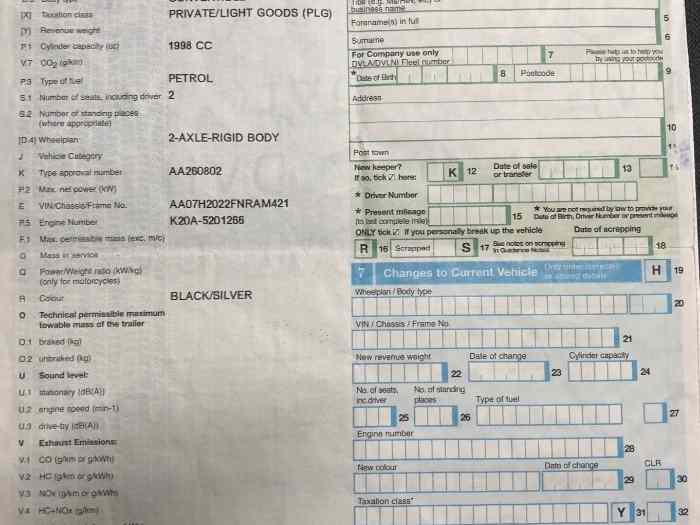 [X] Taxation class PRIVATE/LIGHT GOODS (PLG)
[Y] Revenue weight
P.1 Cylinder capacity (cc) 1998 CC
V.7 CO2 (g/km)
P.3 Type of fuel PETROL
S.1 Number of seats, including driver 2
S.2 Number of standing places
(where appropriate)
[D.4] Wheelplan 2-AXLE-RIGID BODY
J Vehicle Category
K Type approval number AA260802
P.2 Max. net power (kW)
E VIN/Chassis/Frame No. AA07H2022FNRAM421
P.5 Engine Number K20A-5201266
F.1 Max. permissible mass (exc. m/c)
G Mass in service
Q Power/Weight ratio (kW/kg)
(only for motorcycles)
R Colour BLACK/SILVER
O Technical permissible maximum
towable mass of the trailer
O.1 braked (kg)
O.2 unbraked (kg)
U Sound level:
U.1 stationary (dB(A))
U.2 engine speed (min-1)
U.3 drive-by (dB(A))
V Exhaust Emissions:
V.1 CO (g/km or g/kWh)
V.2 HC (g/km or g/kWh)
V.3 NOx (g/km or g/kWh)
V.4 HC+NOx (g/km)
business name
Forename(s) in full 5
Surname 6
For Company use only
DVLA/DVLNI Fleet number 7 Please help us to help you
by using your postcode
* Date of Birth 8 Postcode 9
Address
10
Post town
New keeper?
If so, tick ☑ here: K 12 Date of sale
or transfer 13
* Driver Number
* Present mileage
(to last complete mile) 15 * You are not required by law to provide your
Date of Birth, Driver Number or present mileage
ONLY tick ☑ if you personally break up the vehicle Date of scrapping
R 16 Scrapped S 17 See notes on scrapping
in Guidance Notes 18
7 Changes to Current Vehicle Only enter corrected
or altered details H 19
Wheelplan / Body type
20
VIN / Chassis / Frame No.
21
New revenue weight Date of change Cylinder capacity
22 23 24
No. of seats,
inc.driver No. of standing
places Type of fuel
25 26 27
Engine number
28
New colour Date of change CLR
29 30
Taxation class*
Y 31 32